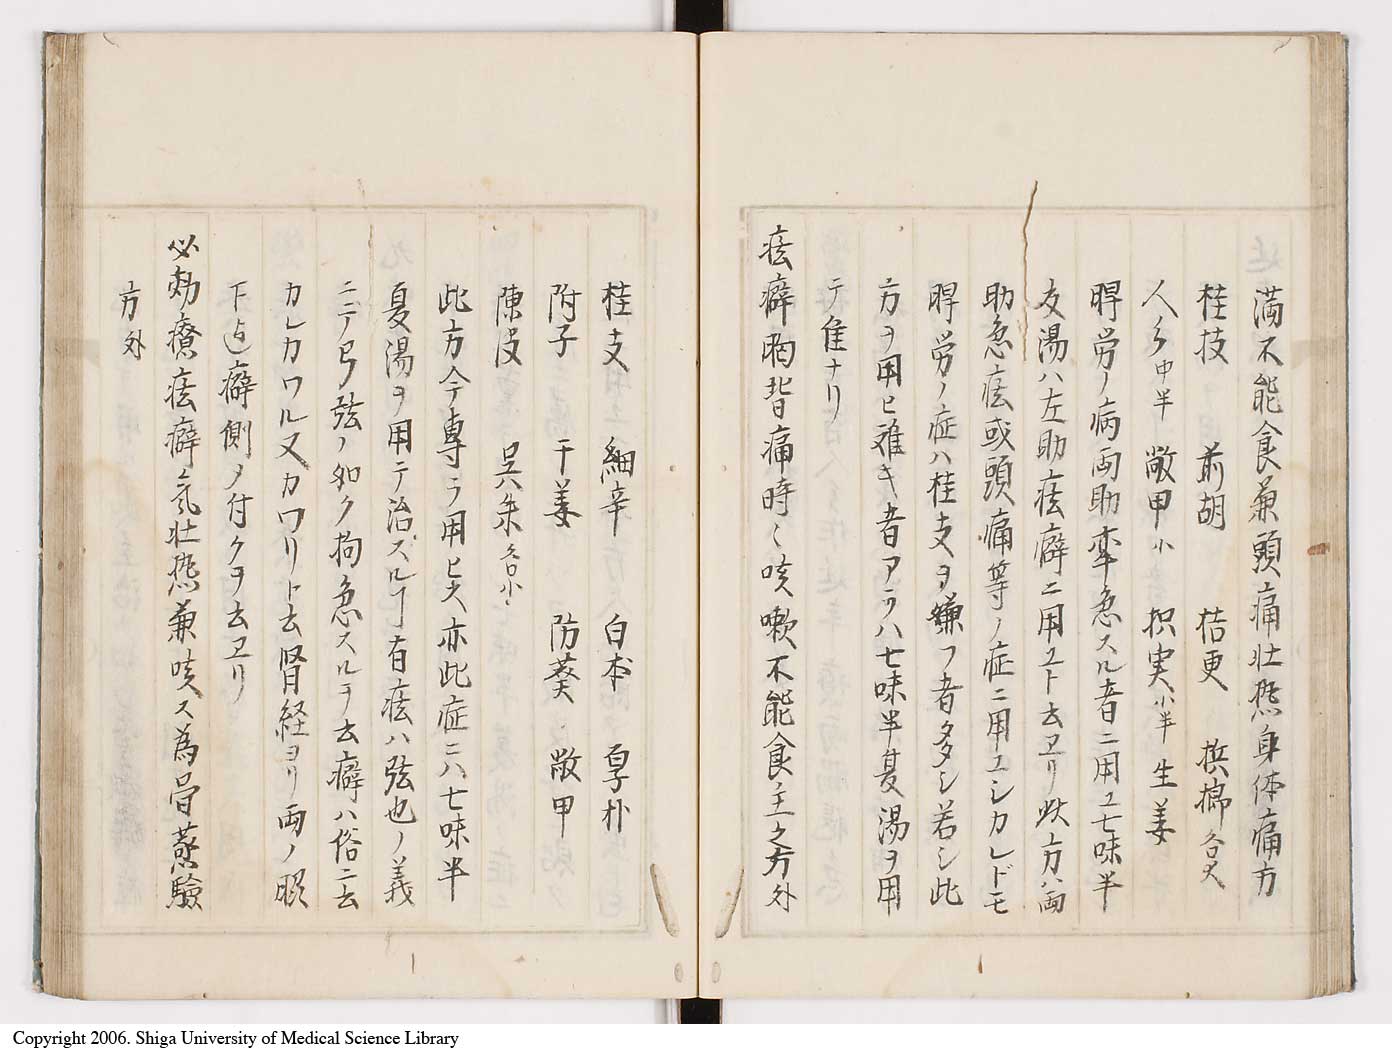 満不能食兼頭痛壮熱身体痛方
桂枝 前胡 桔更 梹榔各大
人参中半 敞甲小 枳実小半 生姜
脾労ノ病両助牽急スル者ニ用ユ七味半
支湯ハ左助痃癖ニ用ユト云ヱリ此方ハ両
助急痃或頭痛等ノ症ニ用ユシカレドモ
脾労ノ症ハ桂支ヲ嫌フ者多シ若シ此
方ヲ用ヒ難キ者アラハ七味半夏湯ヲ用
テ隹ナリ
痃癖胸背痛時々咳嗽不能食主之方外
桂支 細辛 白朮 皂朴
附子 干姜 防葵 敞甲
陳皮 呉朱各小
此方今専ラ用ヒ又亦此症ニハ七味半
夏湯ヲ用テ治スルヿ有痃ハ弦也ノ義
ニテ弓弦ノ如ク拘急スルヲ云癖ハ俗ニ云
カレカワル又カワリト云腎経ヨリ両ノ
下辺癖側ノ付クヲ云ヱリ
必効療痃癖気壮熱兼咳久為骨蒸験
方外
Copyright 2006. Shiga University of Medical Science Library